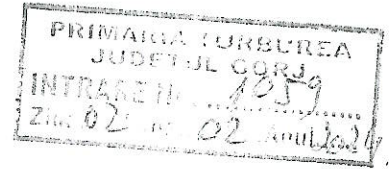 PRIMARIA TURBUREA
JUDETUL GORJ
INTRARE Nr. 1059
Ziua 02 02 Anul